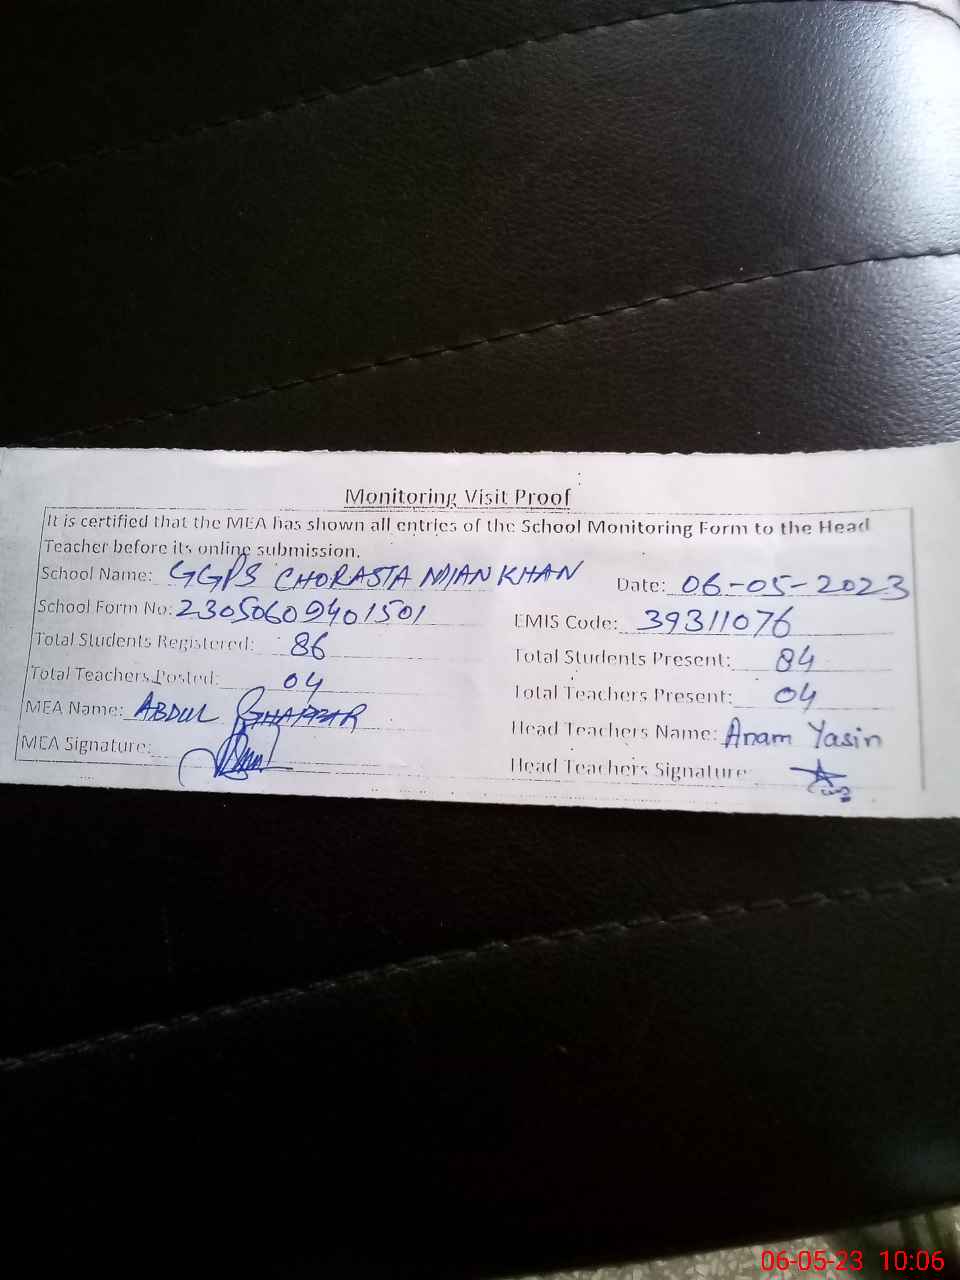 Monitoring Visit Proof
It is certified that the MEA has shown all entries of the School Monitoring Form to the Head
Teacher before its online submission.
School Name: GGPS CHORASTA MIAN KHAN Date: 06-05-2023
School Form No: 23050609401501 EMIS Code: 39311076
Total Students Registered: 86 Total Students Present: 84
Total Teachers Posted: 04 Total Teachers Present: 04
MEA Name: ABDUL GHAFFAR Head Teachers Name: Anam Yasin
MEA Signature: Head Teachers Signature:
06-05-23 10:06